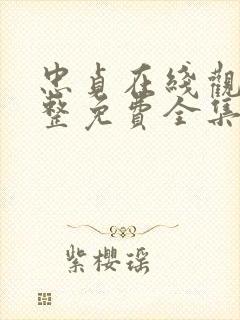 忠貞在綫觀
整免費全集
紫櫻瑶